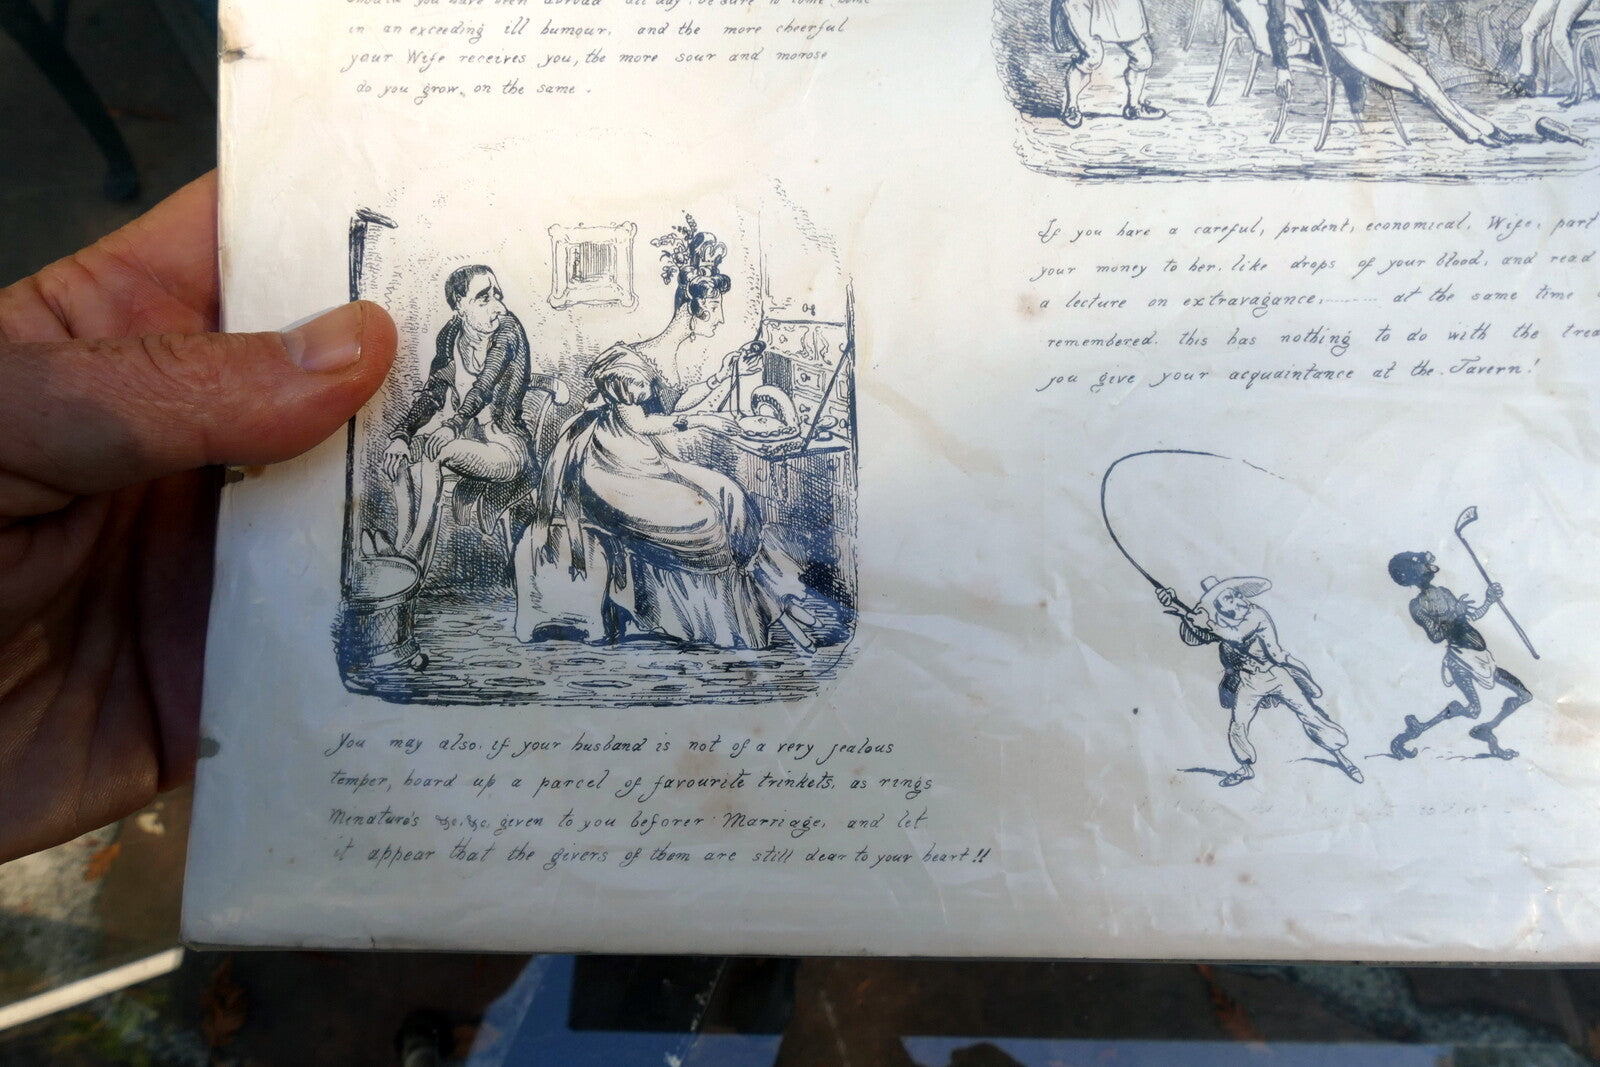 Should you have been abroad all day, be sure to come home
in an exceeding ill humour, and the more cheerful
your Wife receives you, the more sour and morose
do you grow, on the same.
You may also, if your husband is not of a very jealous
temper, hoard up a parcel of favourite trinkets, as rings
Minature's &c. &c. given to you beforer Marriage, and let
it appear that the givers of them are still dear to your heart!!
If you have a careful, prudent, economical, Wife, part
your money to her, like drops of your blood, and read
a lecture on extravagance, ........ at the same time
remembered, this has nothing to do with the
you give your acquaintance at the Tavern!